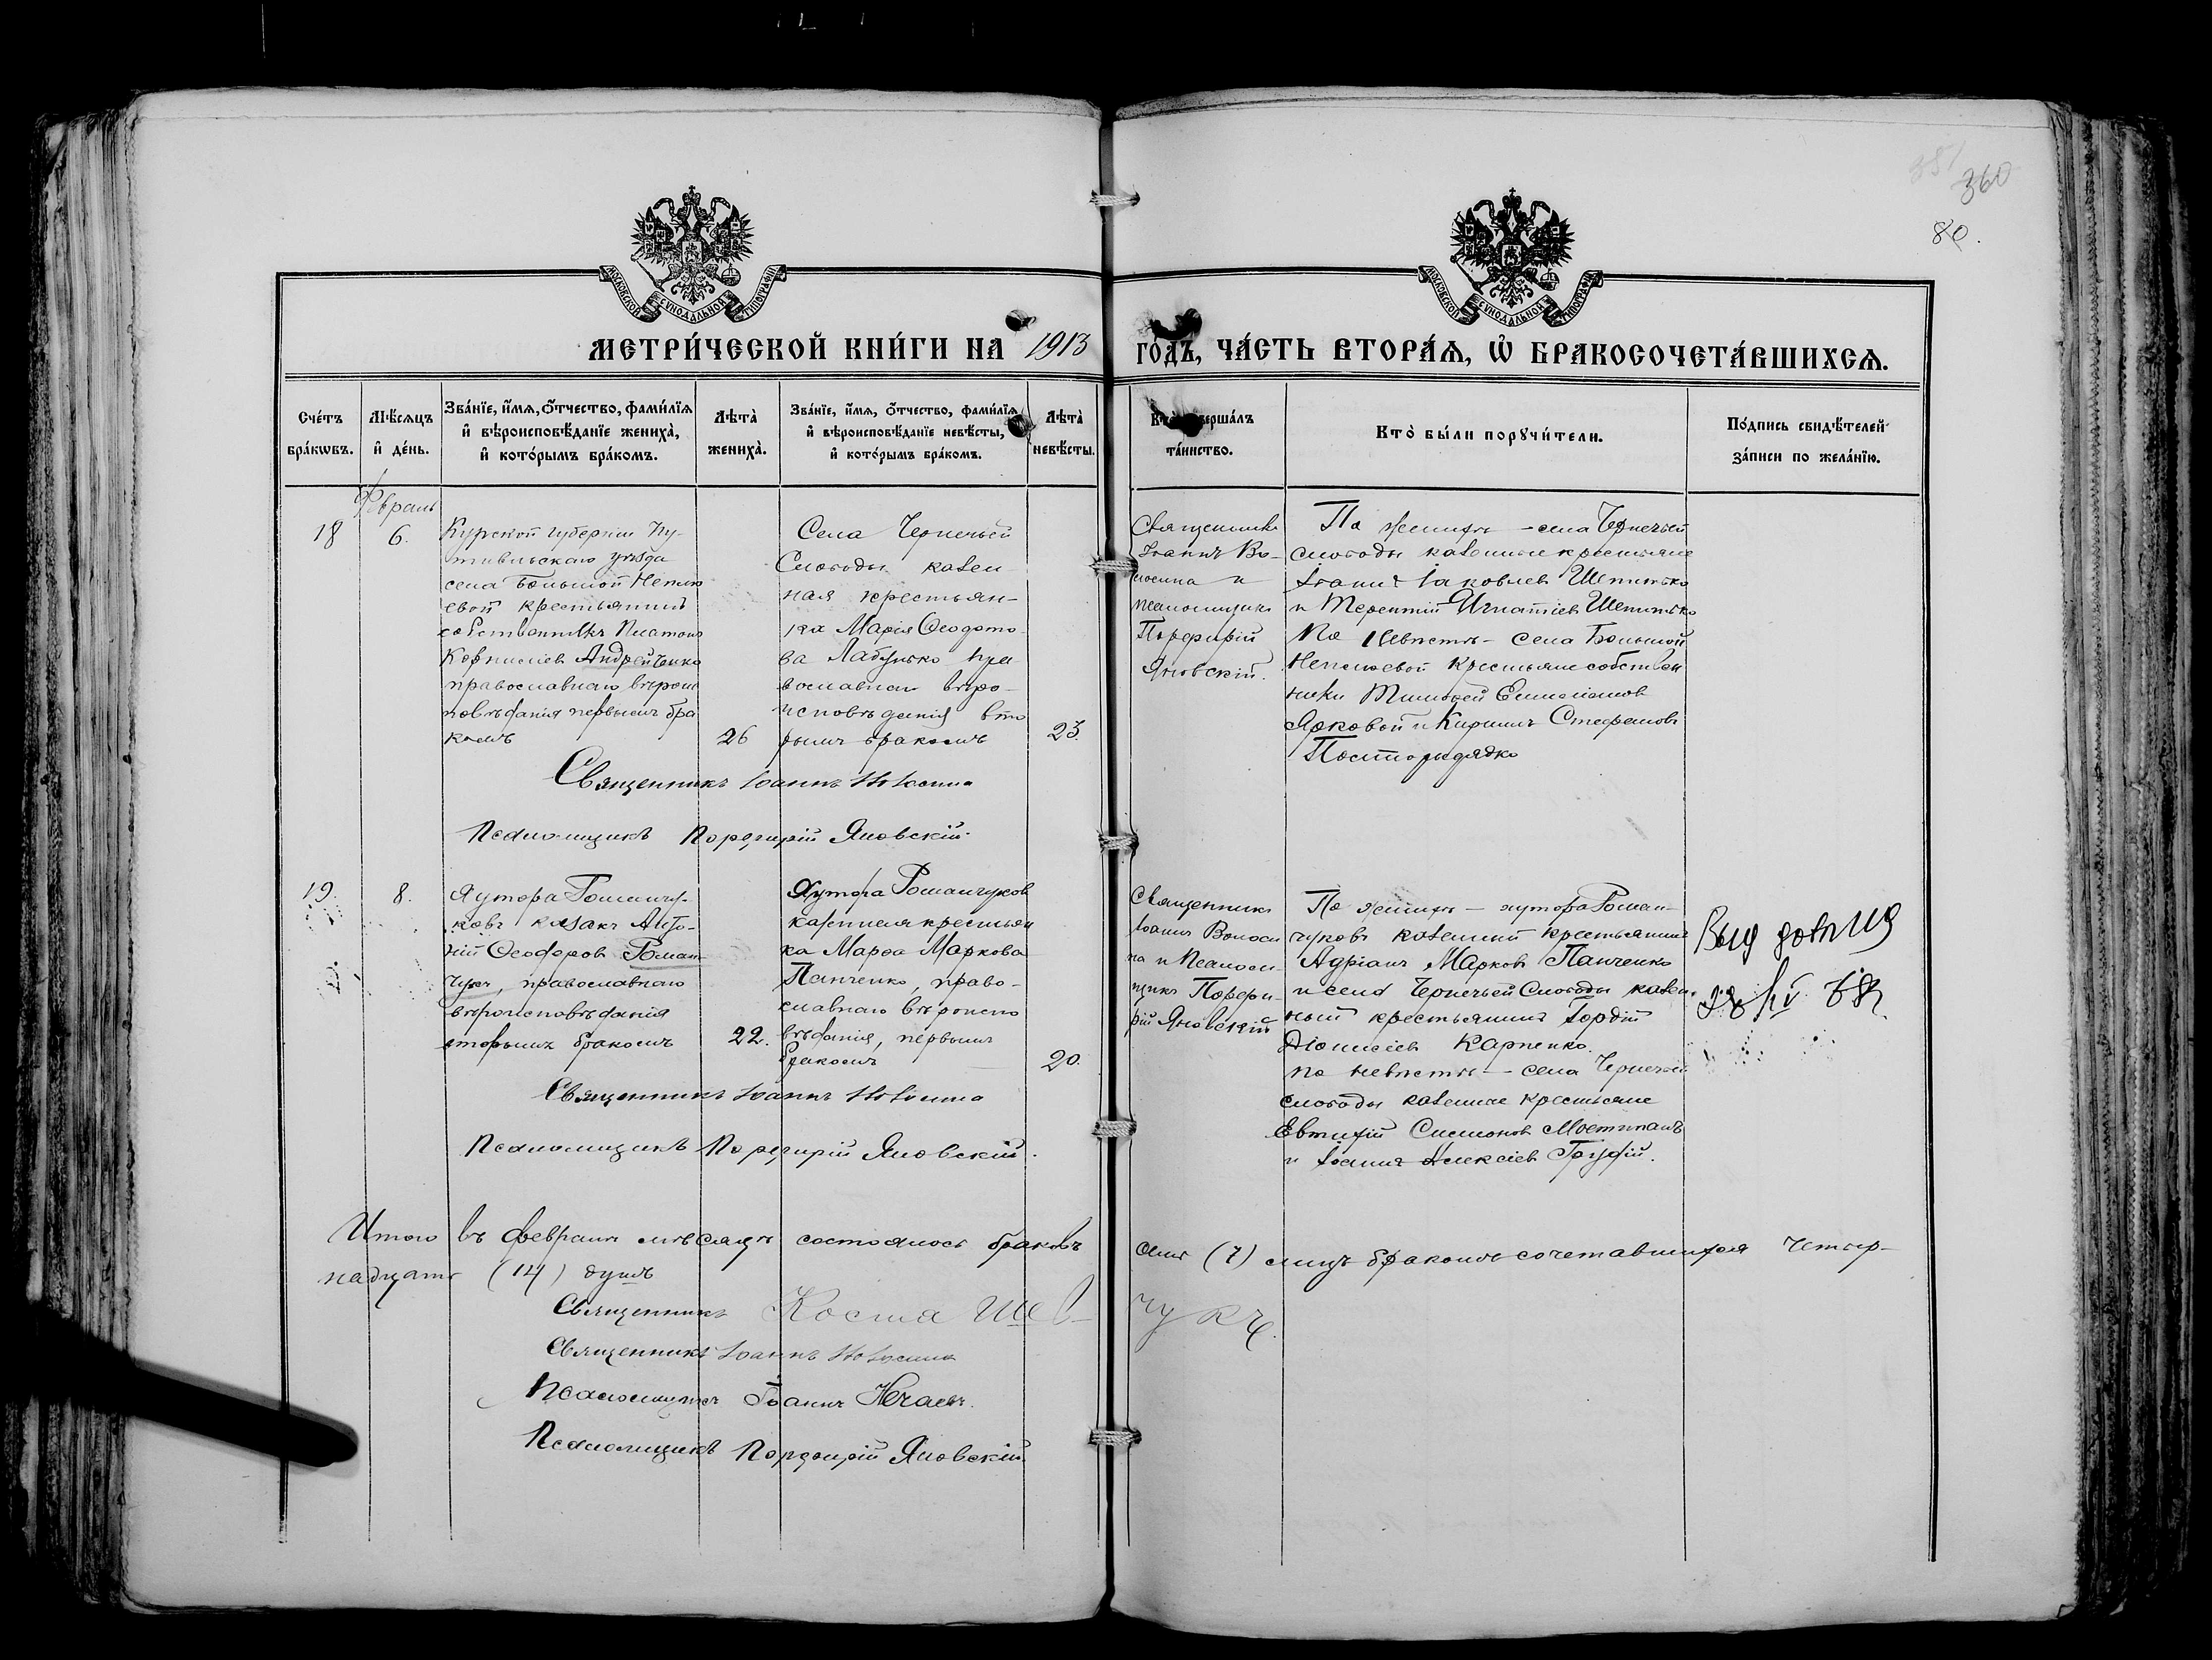 351
360
80.
МОСКОВСКОЙ СУНОДАЛЬНОЙ ТИПОГРАФІИ
МОСКОВСКОЙ СУНОДАЛЬНОЙ ТИПОГРАФІИ
МЕТРИ́ЧЕСКОЙ КНИ́ГИ НА 1913 ГОДЪ, ЧА́СТЬ ВТОРА́Ѧ, Ѡ҆ БРАКОСОЧЕТА́ВШИХСѦ.
Сче́тъ бра́кѡвъ.
Мѣ́сѧцъ и҆ де́нь.
Зва́нїе, и҆́мѧ, ѻ҆́тчество, фами́лїѧ и҆ вѣроисповѣ́данїе жениха̀, и҆ кото́рымъ бра́комъ.
Лѣта̀ жениха̀.
Зва́нїе, и҆́мѧ, ѻ҆́тчество, фами́лїѧ и҆ вѣроисповѣ́данїе невѣ́сты, и҆ кото́рымъ бра́комъ.
Лѣта̀ невѣ́сты.
Кто̀ соверша́лъ та́инство.
Кто̀ бы́ли порꙋчи́тели.
По́дпись свидѣ́телей за́писи по жела́нїю.
Февраль
18
6.
Курской губерніи Пу-
тивльскаго уѣзда
села Большой Непло
евой крестьянинъ
собственникъ Платонъ
Корнилiевъ Андрейченко
православнаго вѣроис
повѣданія первымъ бра
комъ
26
Села Чернечьей
Слободы казен
ная крестьян-
ка Марія Ѳеодото
ва Лабунько пра
вославнаго вѣро-
исповѣданія вто
рымъ бракомъ
23.
Священникъ
Іоаннъ Во-
лосина и
псаломщикъ
Порфирій
Яновскій.
По женихѣ – села Чернечьей
слободы казенные крестьяне
Іоаннъ Іаковлевъ Шепитько
и Терентій Игнатіевъ Шепитько
По невѣстѣ – села Большой
Неплюевой крестьяне собствен
ники Тимоѳей Емеліановъ
Ярковой и Кириллъ Стефановъ
Священникъ Іоаннъ Волосина
Псаломщикъ Порфирій Яновскій.
19.
8.
Хутора Романчу-
ковъ казакъ Анто-
ній Ѳеодоровъ Роман-
чукъ, православнаго
вѣроисповѣданія
вторымъ бракомъ
22.
Хутора Романчуковъ
казенная крестьян
ка Марѳа Маркова
Панченко, право-
славнаго вѣроиспо
вѣданія, первымъ
бракомъ
20.
Священникъ
Іоаннъ Волоси
на и Псалом-
щикъ Порфи-
рій Яновскій
По женихѣ – хутора Роман-
чуковъ казенный крестьянинъ
Адріанъ Марковъ Панченко
и села Чернечьей Слободы казен-
ный крестьянинъ Гордій
Діонисіевъ Карпенко.
По невѣстѣ – села Чернечьей
слободы казенные крестьяне
Евтихій Симоновъ Мостипанъ
и Іоаннъ Алексіевъ
Священникъ Іоаннъ Волосина
Псаломщикъ Порфирій Яновскій.
Итого въ февралѣ мѣсяцѣ состоялось браковъ семь (7) лицъ бракомъ сочетавшихся четыр-
надцать (14) душъ
Священникъ Косма Шевчукъ.
Священникъ Іоаннъ Волосина
Псаломщикъ Іоаннъ Нечаевъ.
Псаломщикъ Порфирій Яновскій